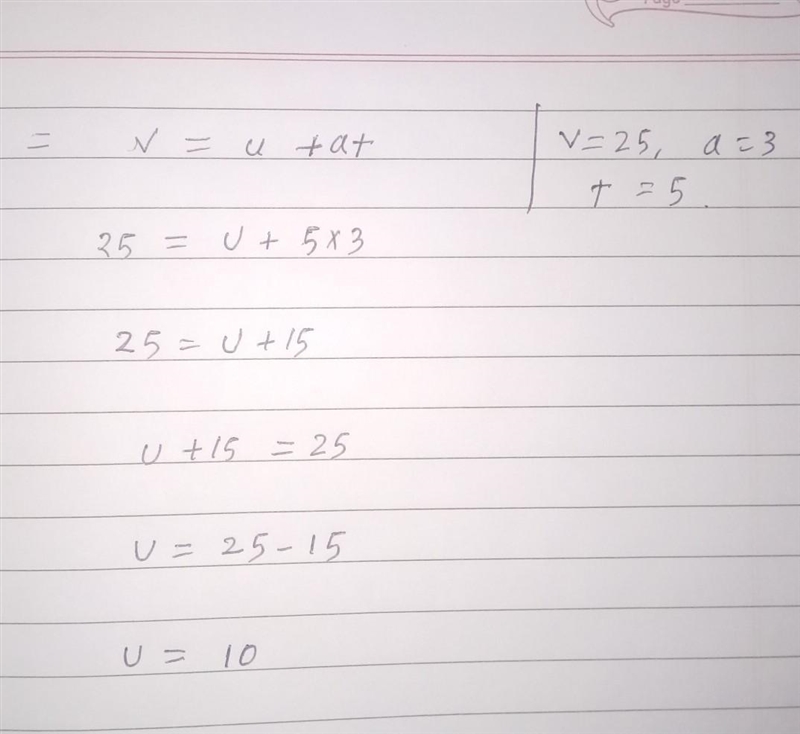 Page
= v = u + at
v = 25, a = 3
t = 5.
25 = u + 5 × 3
25 = u + 15
u + 15 = 25
u = 25 - 15
u = 10